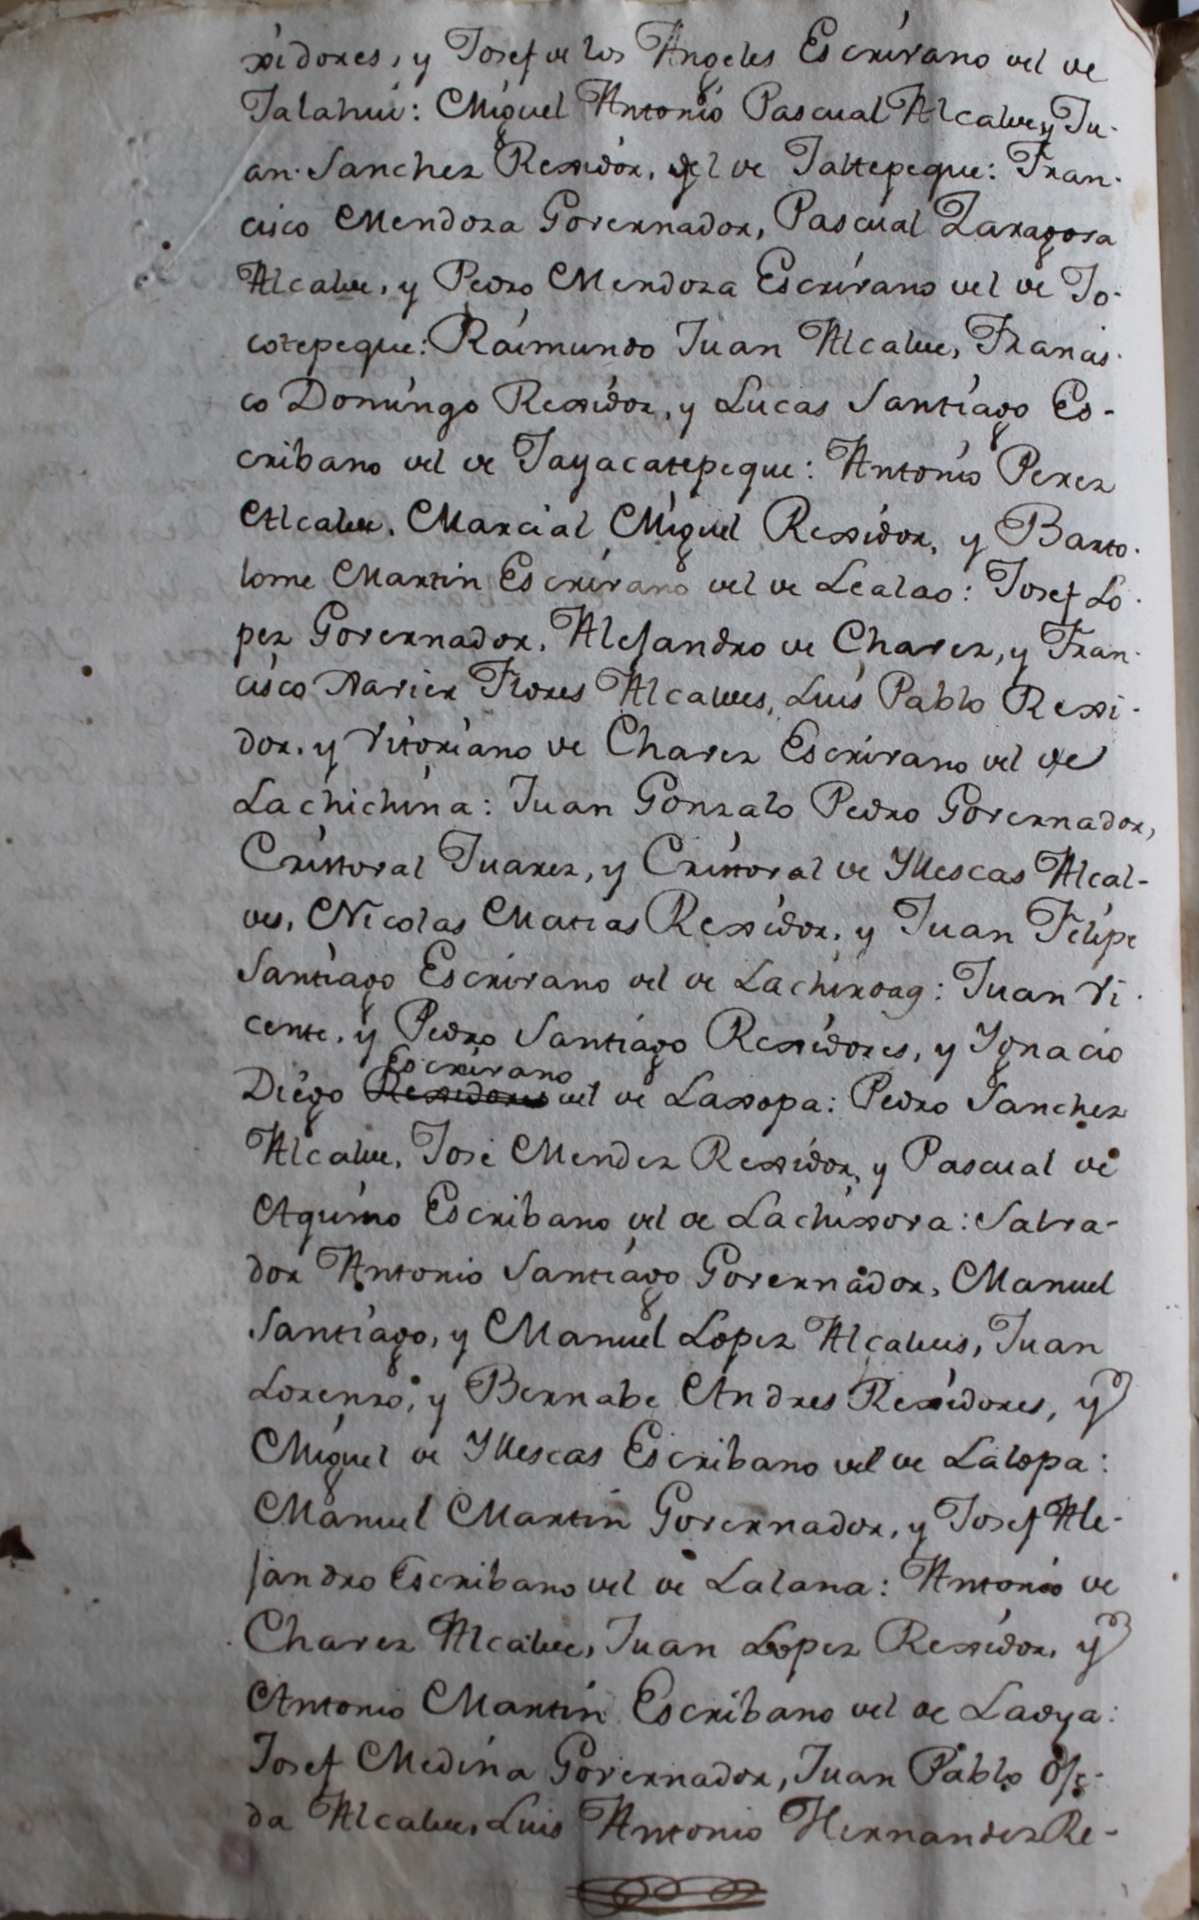 xidores, y Josef de los Angeles Escrivano del de
Jalahui: Miguel Antonio Pascual Alcalde, y Ju-
an Sanchez Rexidor, del de Jaltepeque: Fran-
cisco Mendoza Governador, Pascual Zaragosa
Alcalde, y Pedro Mendoza Escrivano del de Jo-
cotepeque: Raimundo Juan Alcalde, Francis-
co Domingo Rexidor, y Lucas Santiago Es-
cribano del de Jayacatepeque: Antonio Perez
Alcalde, Marcial Miguel Rexidor, y Barto-
lome Martin Escrivano del de Lealao: Josef Lo-
pez Governador, Alejandro de Chavez, y Fran-
cisco Xavier Flores Alcaldes, Luis Pablo Rexi-
dor, y Vitoriano de Chavez Escrivano del de
Lachichina: Juan Gonzalo Pedro Governador,
Cristoval Juarez, y Cristoval de Yllescas Alcal-
des, Nicolas Matias Rexidor, y Juan Felipe
Santiago Escrivano del de Lachixoag: Juan Vi-
cente, y Pedro Santiago Rexidores, y Ygnacio
Escrivano
Diego Rexidores del de Laxopa: Pedro Sanchez
Alcalde, José Mendez Rexidor, y Pascual de
Aquino Escribano del de Lachixova: Salva-
dor Antonio Santiago Governador, Manuel
Santiago, y Manuel Lopez Alcaldes, Juan
Lorenzo, y Bernabe Andres Rexidores, y
Miguel de Yllescas Escribano del de Lalopa:
Manuel Martin Governador, y Josef Ale-
jandro Escribano del de Lalana: Antonio de
Chavez Alcalde, Juan Lopez Rexidor, y
Antonio Martin Escribano del de Ladya:
Josef Medina Governador, Juan Pablo Oje-
da Alcalde, Luis Antonio Hernandez Re-